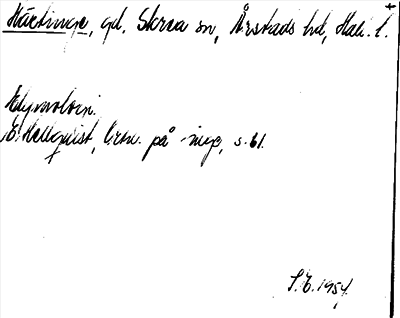 Häctinge, gd, Skrea sn, Årstads hd, Hall. l.
Etymologi.
E. Hellquist, Ortn. på -inge, s. 61.
S.E. 1954.